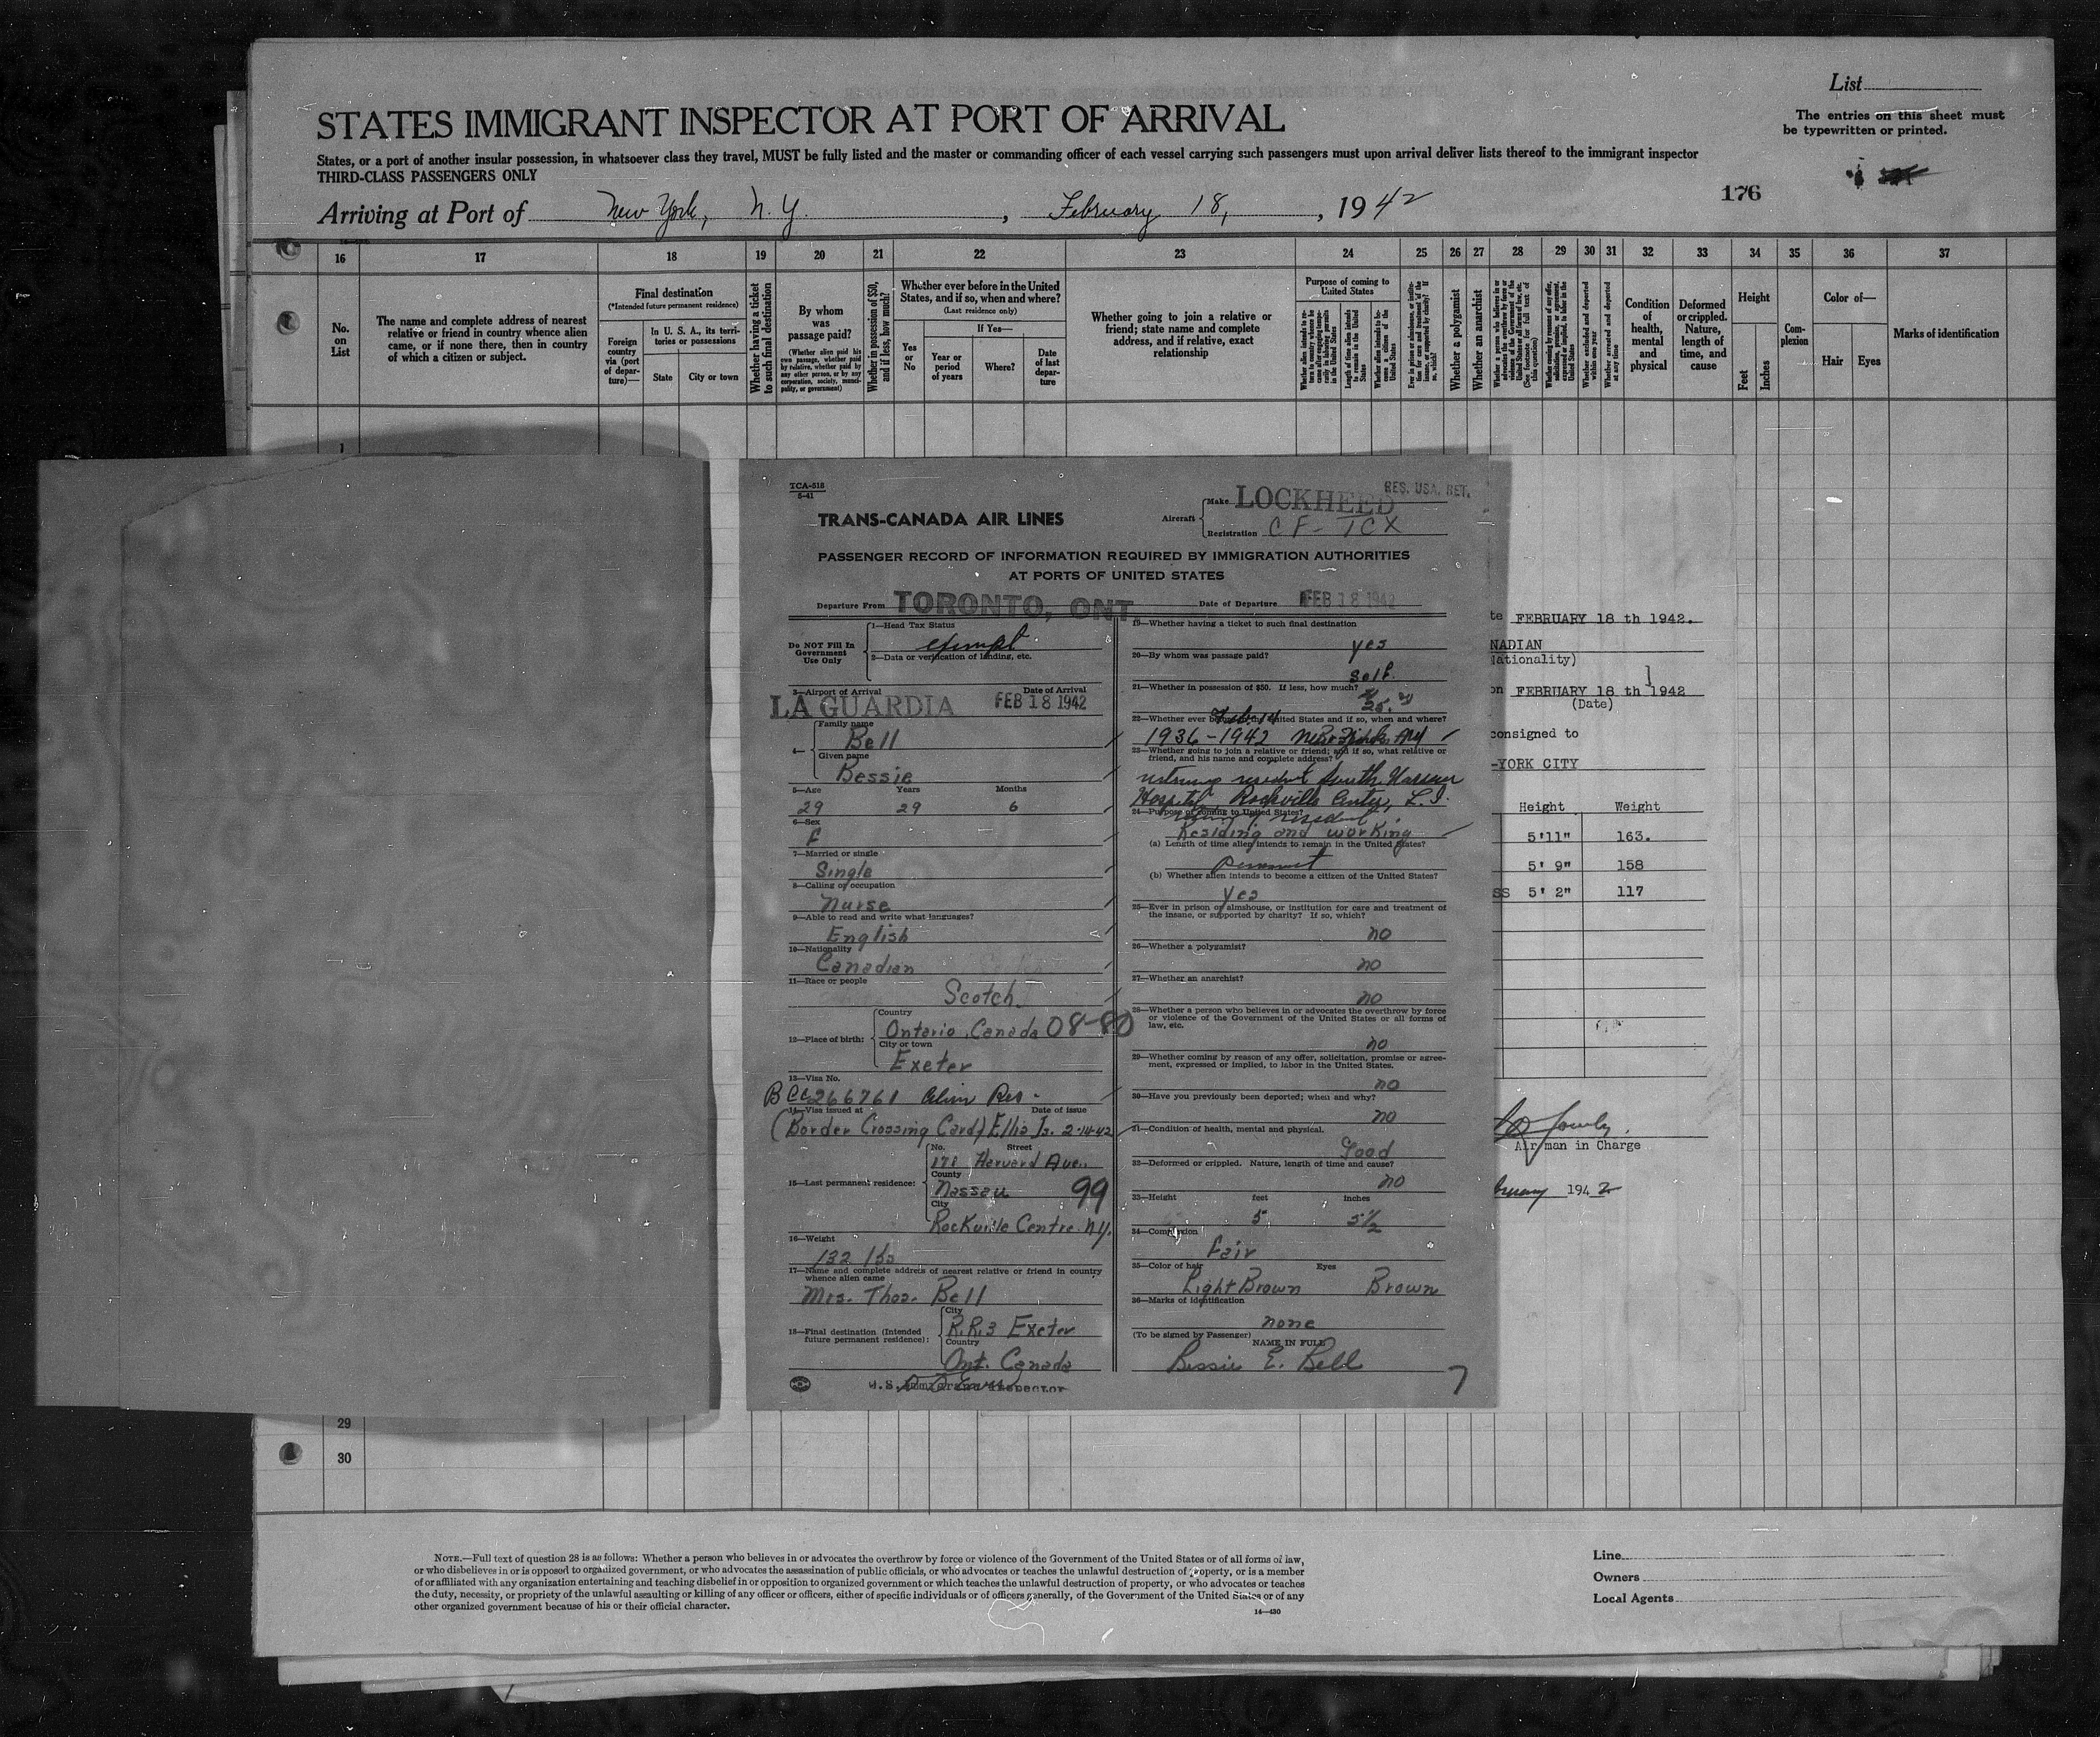 List
STATES IMMIGRANT INSPECTOR AT PORT OF ARRIVAL
The entries on this sheet must
be typewritten or printed.
States, or a port of another insular possession, in whatsoever class they travel, MUST be fully listed and the master or commanding officer of each vessel carrying such passengers must upon arrival deliver lists thereof to the immigrant inspector
THIRD-CLASS PASSENGERS ONLY
176
Arriving at Port of New York, N.Y. , February 18, , 1942
16 17 18 19 20 21 22 23 24 25 26 27 28 29 30 31 32 33 34 35 36 37
No.
on
List
The name and complete address of nearest
relative or friend in country whence alien
came, or if none there, then in country
of which a citizen or subject.
Final destination
(*Intended future permanent residence)
Foreign
country
via (port
of depar-
ture)—
In U. S. A., its terri-
tories or possessions
State
City or town
Whether having a ticket
to such final destination
By whom
was
passage paid?
(Whether alien paid his
own passage, whether paid
by relative, whether paid by
any other person, or by any
corporation, society, munici-
pality, or government)
Whether in possession of $50,
and if less, how much?
Whether ever before in the United
States, and if so, when and where?
(Last residence only)
Yes
or
No
If Yes—
Year or
period
of years
Where?
Date
of last
depar-
ture
Whether going to join a relative or
friend; state name and complete
address, and if relative, exact
relationship
Purpose of coming to
United States
Whether a polygamist
Whether an anarchist
Condition
of
health,
mental
and
physical
Deformed
or crippled.
Nature,
length of
time, and
cause
Height
Feet
Inches
Com-
plexion
Color of—
Hair
Eyes
Marks of identification
1
TCA-518
5-41
TRANS-CANADA AIR LINES
Aircraft
Make LOCKHEED
RES. USA. RET.
Registration CF-TCX
PASSENGER RECORD OF INFORMATION REQUIRED BY IMMIGRATION AUTHORITIES
AT PORTS OF UNITED STATES
Departure From TORONTO, ONT.
Date of Departure FEB 18 1942
Do NOT Fill In
Government
Use Only
1—Head Tax Status
exempt
2—Data or verification of landing, etc.
3—Airport of Arrival Date of Arrival
LA GUARDIA FEB 18 1942
4—
Family name
Bell
Given name
Bessie
5—Age Years Months
29 29 6
6—Sex
F
7—Married or single
Single
8—Calling or occupation
Nurse
9—Able to read and write what languages?
English
10—Nationality
Canadian
11—Race or people
Scotch
12—Place of birth:
Country
Ontario, Canada 08-80
City or town
Exeter
13—Visa No.
BCC 266761 Alien Res.
14—Visa issued at Date of issue
(Border Crossing Card) Ellis Is. 2-14-42
15—Last permanent residence:
No. Street
171 Harvard Ave.
County
Nassau 99
City
Rockville Centre N.Y.
16—Weight
132 lbs
17—Name and complete address of nearest relative or friend in country
whence alien came
Mrs. Thos. Bell
18—Final destination (Intended
future permanent residence):
City
R.R.3 Exeter
Country
Ont. Canada
U.S. Immigrant Inspector
19—Whether having a ticket to such final destination
yes
20—By whom was passage paid?
self.
21—Whether in possession of $50. If less, how much?
25.
22—Whether ever before in the United States and if so, when and where?
Feb. 14
1936-1942 New York, NY
23—Whether going to join a relative or friend; and if so, what relative or
friend, and his name and complete address?
returning resident South Nassau
Hospital, Rockville Center, L.I.
24—Purpose of coming to United States?
resident
Residing and working
(a) Length of time alien intends to remain in the United States?
(b) Whether alien intends to become a citizen of the United States?
yes
25—Ever in prison or almshouse, or institution for care and treatment of
the insane, or supported by charity? If so, which?
no
26—Whether a polygamist?
no
27—Whether an anarchist?
no
28—Whether a person who believes in or advocates the overthrow by force
or violence of the Government of the United States or all forms of
law, etc.
no
29—Whether coming by reason of any offer, solicitation, promise or agree-
ment, expressed or implied, to labor in the United States.
no
30—Have you previously been deported; when and why?
no
31—Condition of health, mental and physical.
Good
32—Deformed or crippled. Nature, length of time and cause?
no
33—Height feet inches
5 5½
34—Complexion
Fair
35—Color of hair Eyes
Light Brown Brown
36—Marks of identification
none
(To be signed by Passenger)
NAME IN FULL
Bessie E. Bell
7
te FEBRUARY 18 th 1942.
NADIAN
(Nationality)
on FEBRUARY 18 th 1942
(Date)
consigned to
-YORK CITY
Height Weight
5'11" 163.
5' 9" 158
SS 5' 2" 117
Airman in Charge
bruary 1942
29
30
NOTE.—Full text of question 28 is as follows: Whether a person who believes in or advocates the overthrow by force or violence of the Government of the United States or of all forms of law,
or who disbelieves in or is opposed to organized government, or who advocates the assassination of public officials, or who advocates or teaches the unlawful destruction of property, or is a member
of or affiliated with any organization entertaining and teaching disbelief in or opposition to organized government or which teaches the unlawful destruction of property, or who advocates or teaches
the duty, necessity, or propriety of the unlawful assaulting or killing of any officer or officers, either of specific individuals or of officers generally, of the Government of the United States or of any
other organized government because of his or their official character.
14—430
Line
Owners
Local Agents